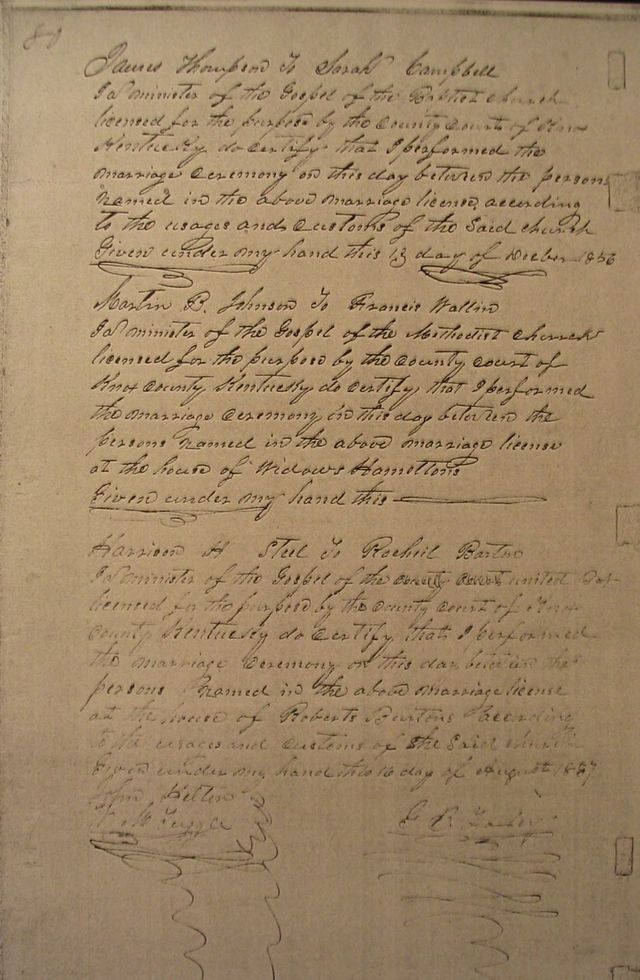 James Thompson To Sarah Campbell
I a minister of the Gospel of the Baptist Church
licensed for the purpose by the County Court of Knox
Kentucky do certify that I performed the
marriage ceremony on this day between the persons
named in the above marriage license, according
to the usages and customs of the Said church
Given under my hand this 13 day of Decber 1856
Martin B. Johnson To Francis Wallin
I a minister of the Gospel of the Methodist Church
licensed for the purpose by the County Court of
Knox County Kentucky do certify that I performed
the marriage ceremony in this day between the
persons named in the above marriage license
at the house of Widows Hamiltons
Given under my hand this
Harrison H Steel To Racheil Barton
I a minister of the Gospel of the united Bap
licensed for the purpose by the County Court of Knox
County Kentucky do certify that I performed
the marriage ceremony on this day between the
persons named in the above marriage license
at the house of Roberts Burtons according
to the usages and customs of the Said church
Given under my hand this 16 day of August 1857
John